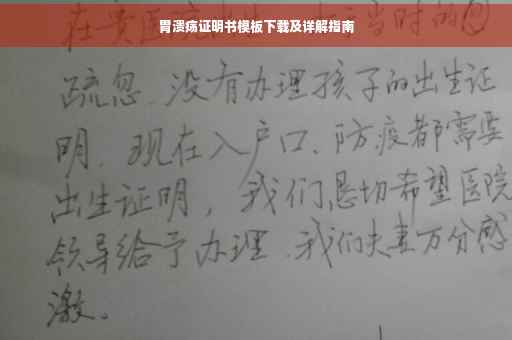 胃溃疡证明书模板下载及详解指南
在贵医院 当时的
疏忽、没有办理孩子的出生证
明、现在入户口、防疫都需要
出生证明，我们恳切希望医院
领导给予办理、我们夫妻万分感
激。